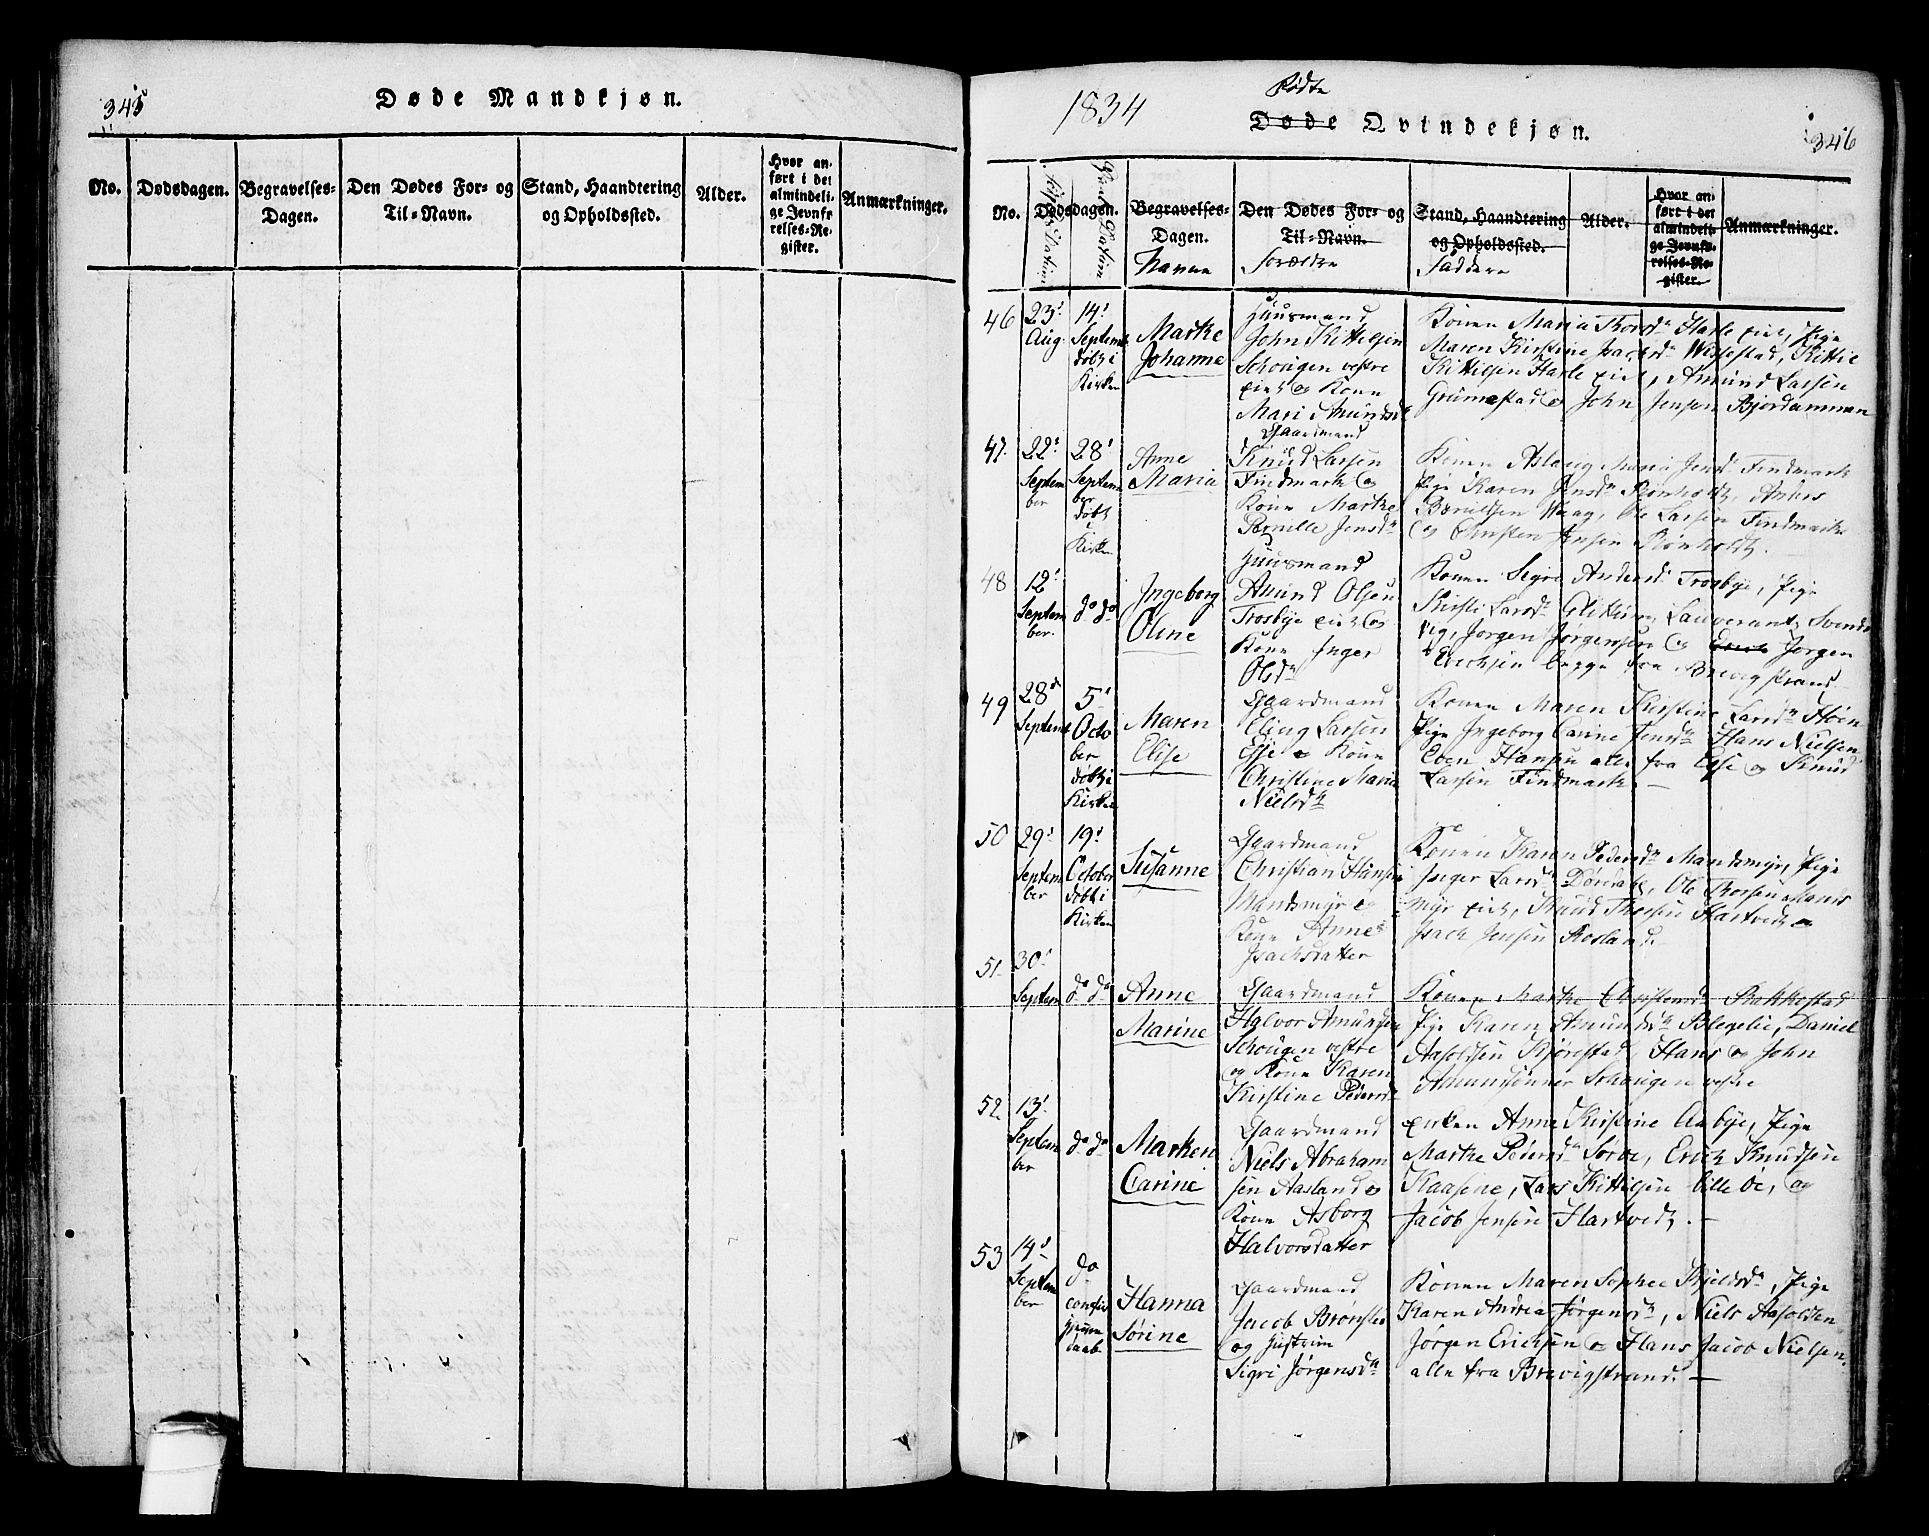 345
Døde Mandkjøn.
No.
Dødsdagen.
Begravelses-
Dagen.
Den Dødes For- og
Til-Navn.
Stand, Haandtering
og Opholdssted.
Alder.
Hvor an-
ført i det
almindeli-
ge Jevnfø-
relses-Re-
gister.
Anmærkninger.
1834
Fødte
Døde Qvindekjøn.
346
No.
Dødsdagen.
Begravelses-
Dagen.
Navne
Den Dødes For- og
Til-Navn.
Forældre
Stand, Haandtering
og Opholdssted.
Faddere
Alder.
Hvor an-
ført i det
almindeli-
ge Jevnfø-
relses-Re-
gister.
Anmærkninger.
46
23'
Aug.
14'
Septemb
døbt i
Kirken
Marthe
Johanne
Huusmand
John Kittilsen
Schougen vestre
eiet og Kone
Mari Amundsd
Konen Maria Thorsd Harle eiet, Pige
Maren Kirstine Isachsd Wissestad, Kittil
Kittilsen Harle eiet, Amund Larsen
Grumestad og John Jensen Bjordammen
47.
22'
Septem
ber
28'
Septem
ber
døbt
i
Kirken
Anne
Maria
Gaardmand
Knud Larsen
Findmark og
Kone Marthe
Pernille Jensdr
Konen Aslaug Maria Jensd Findmark
Pige Karen Jensdr Rønholdt, Anders
Bærulfsen Waag, Ole Larsen Findmark
og Christen Jensen Rønholdt.
48
12'
Septem
ber.
do do
Ingeborg
Oline
Huusmand
Amund Olsen
Trosbye eiet og
Kone Inger
Olsdr
Konen Sigre Andersd Trosbye, Pige
Kirsti Larsdr Glittum, Laurentz Svends
vig, Jørgen Jørgensen og Jørgen
Ericksen begge fra Brevigstrand
49
28d
Septemb
5'
Octo
ber
døbt i
Kirken
Maren
Elise
Gaardmand
Eling Larsen
Esse og Kone
Christine Maria
Nielsdr
Konen Maren Kirstine Larsdr Høen
Pige Ingeborg Carine Jensdr Hans Nielsen
Even Hansen alle fra Esse og Knud
Larsen Findmark. —
50
29'
Septem
ber
19'
October
døbt i
Kirken
Susanne
Gaardmand
Christian Hansen
Mandsmyr og
Kone Anne
Isachsdatter
Konen Karen Pedersdr Mandsmyr, Pige
Inger Larsd Dørdahl, Ole Thorsen Mands
myr eiet, Knud Thorsen Hartvedt og
Isach Jensen Rosland. —
51.
30'
Septem
do do
Anne
Marine
Gaardmand
Halvor Amundsen
Schougen vestre
og Kone Karen
Kirstine Pedersd
Konen Marthe Christensd Stokkestad
Pige Karen Amundsdr Blegelie, Daniel
Aasoldsen Kjørestad, Hans og John
Amundsønner Schougen vestre
52.
13'
Septem
ber
do do
Marken
Carine
Gaardmand
Niels Abraham
sen Aasland og
Kone Asborg
Halvorsdatter
Enken Anne Kirstine Aabye, Pige
Marthe Pedersdr Sørbe, Erick Knudsen
Kaasene, Lars Kittilsen lille Øe, og
Jacob Jensen Hartvedt. —
53
14d
Septem
ber
do
Hanna
Sørine
Gaardmand
Jacob Brønsted
og Hustrue
Sigri Jørgensdr
Konen Maren Sophie Kjeldsdr, Pige
Karen Andrea Jørgensdr, Niels Aasoldsen
Jørgen Ericksen og Hans Jacob Nielsen
alle fra Brevigstrand. —